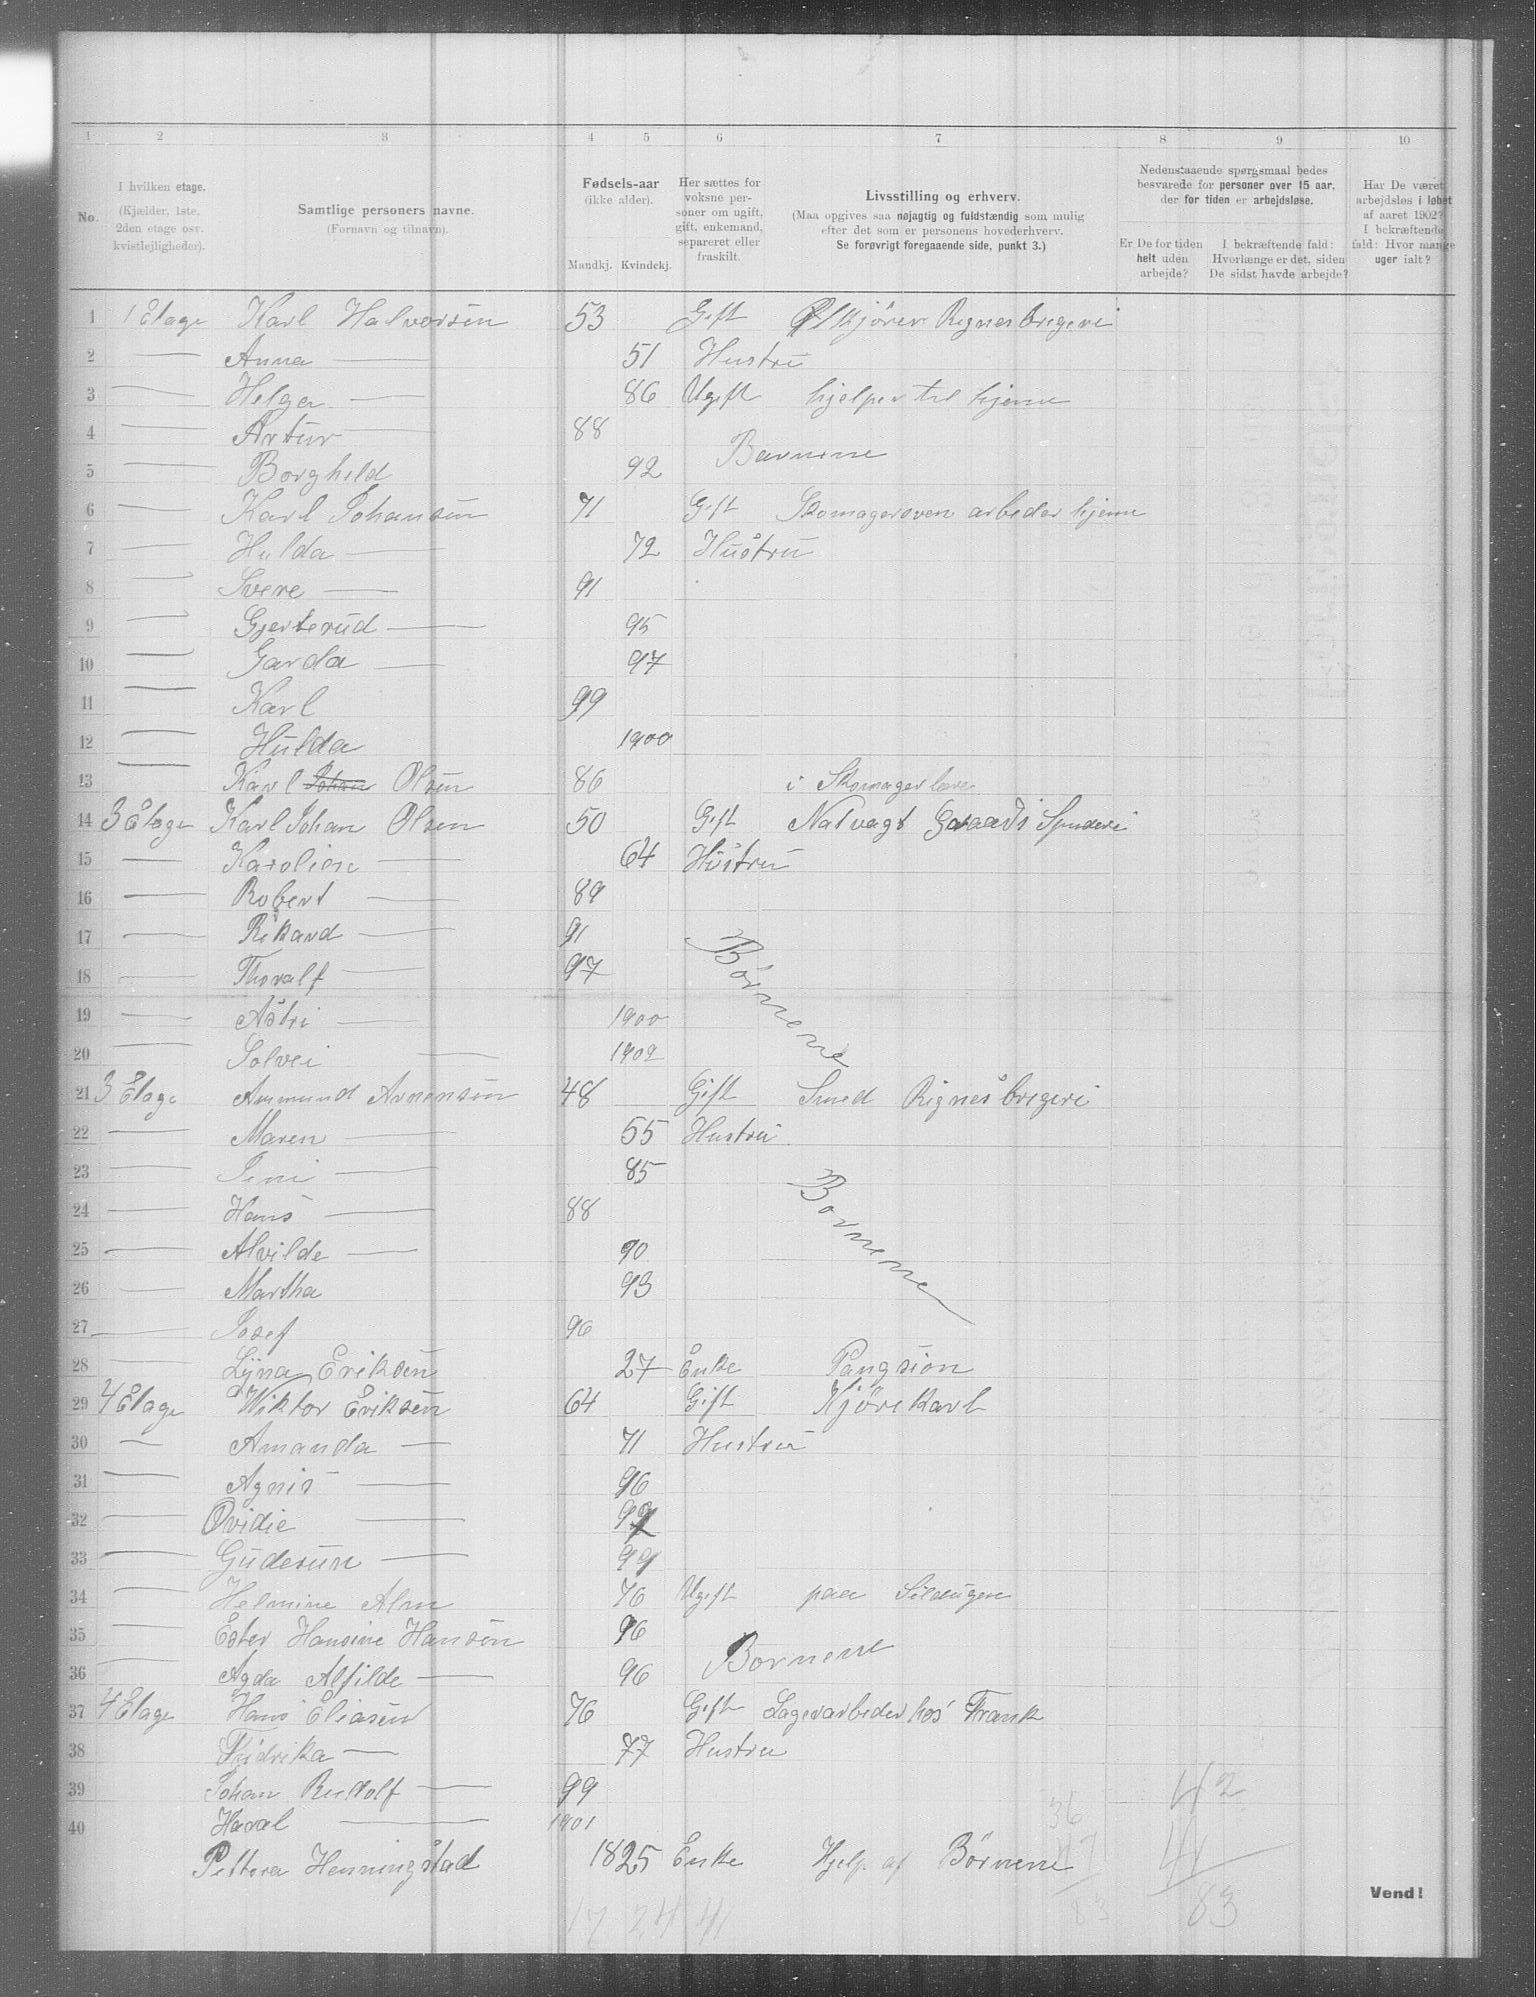 1 2 3 4 5 6 7 8 9 10
No.
I hvilken etage. (Kjælder, 1ste, 2den etage osv. kvistlejligheder).
Samtlige personers navne. (Fornavn og tilnavn).
Fødsels-aar (ikke alder). Mandkj. Kvindekj.
Her sættes for voksne personer om ugift, gift, enkemand, separeret eller fraskilt.
Livsstilling og erhverv. (Maa opgives saa nøjagtig og fuldstændig som mulig efter det som er personens hovederhverv. Se forøvrigt foregaaende side, punkt 3.)
Nedenstaaende spørgsmaal bedes besvarede for personer over 15 aar, der for tiden er arbejdsløse.
Er De for tiden helt uden arbejde?
I bekræftende fald: Hvorlænge er det, siden De sidst havde arbejde?
Har De været arbejdsløs i løbet af aaret 1902? I bekræftende fald: Hvor mange uger ialt?
1 1 Etage Karl Halvorsen 53 Gift Ølkjører Rignes brygeri
2 — Anna — 51 Hustru
3 — Helga — 86 Ugift hjelper til hjeme
4 — Artur — 88
5 — Borghild 92 Barnene
6 — Karl Johansen 71 Gift Skomagersven arbeder hjeme
7 — Hulda — 72 Hustru
8 — Svere — 91
9 — Gjerterud — 95
10 — Garda — 97
11 — Karl 99
12 — Hulda 1900
13 — Karl Johan Olsen 86 i Skomager lære
14 3 Etage Karl Johan Olsen 50 Gift Natvagt Graads Spinderi
15 — Karolien — 64 Hustru
16 — Robert — 89
17 — Rikard — 91
18 — Thoralf — 97 Børnene
19 — Astri — 1900
20 — Solvei — 1902
21 3 Etage Ammund Arnensen 48 Gift Smed Rignes brigeri
22 — Maren — 55 Hustru
23 — Jeni — 85
24 — Hans — 88 Bornene
25 — Alvilde — 90
26 — Martha 93
27 — Josef 96
28 — Lyna Eriksen 27 Enke Pangsion
29 4 Etage Wiktor Eriksen 64 Gift Kjørekarl
30 — Amanda — 71 Hustru
31 — Agnis — 96
32 — Ovidie — 99
33 — Guderun — 99
34 — Helmine Alm 76 Ugift paa
35 — Ester Hansine Hansen 96
36 — Agda Alfilde — 96 Bornene
37 4 Etage Hans Eliasen 76 Gift Lagerarbeder hos Frank
38 Fridrika — 77 Hustru
39 Johan Rudolf — 99
40 Haral — 1901
Pettera Henningstad 1825 Enke Hjelp af Børnene
36
47
83
42
41
83
17 24 41
Vend!